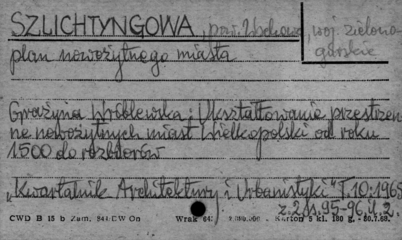 SZLICHTYNGOWA, pow. Wschowa, woj. zielono-
górskie
plan nowożytnego miasta
Grażyna Wróblewska: Ukształtowanie przestrzen-
ne nowożytnych miast Wielkopolski od roku
1500 do rozbiorów
„Kwartalnik Architektury i Urbanistyki" T.10:1965
z.2 s.95-96, il.2.
CWD B 15 b Zam. CW On Wrak 64: Karton 5 kl. 180 g.